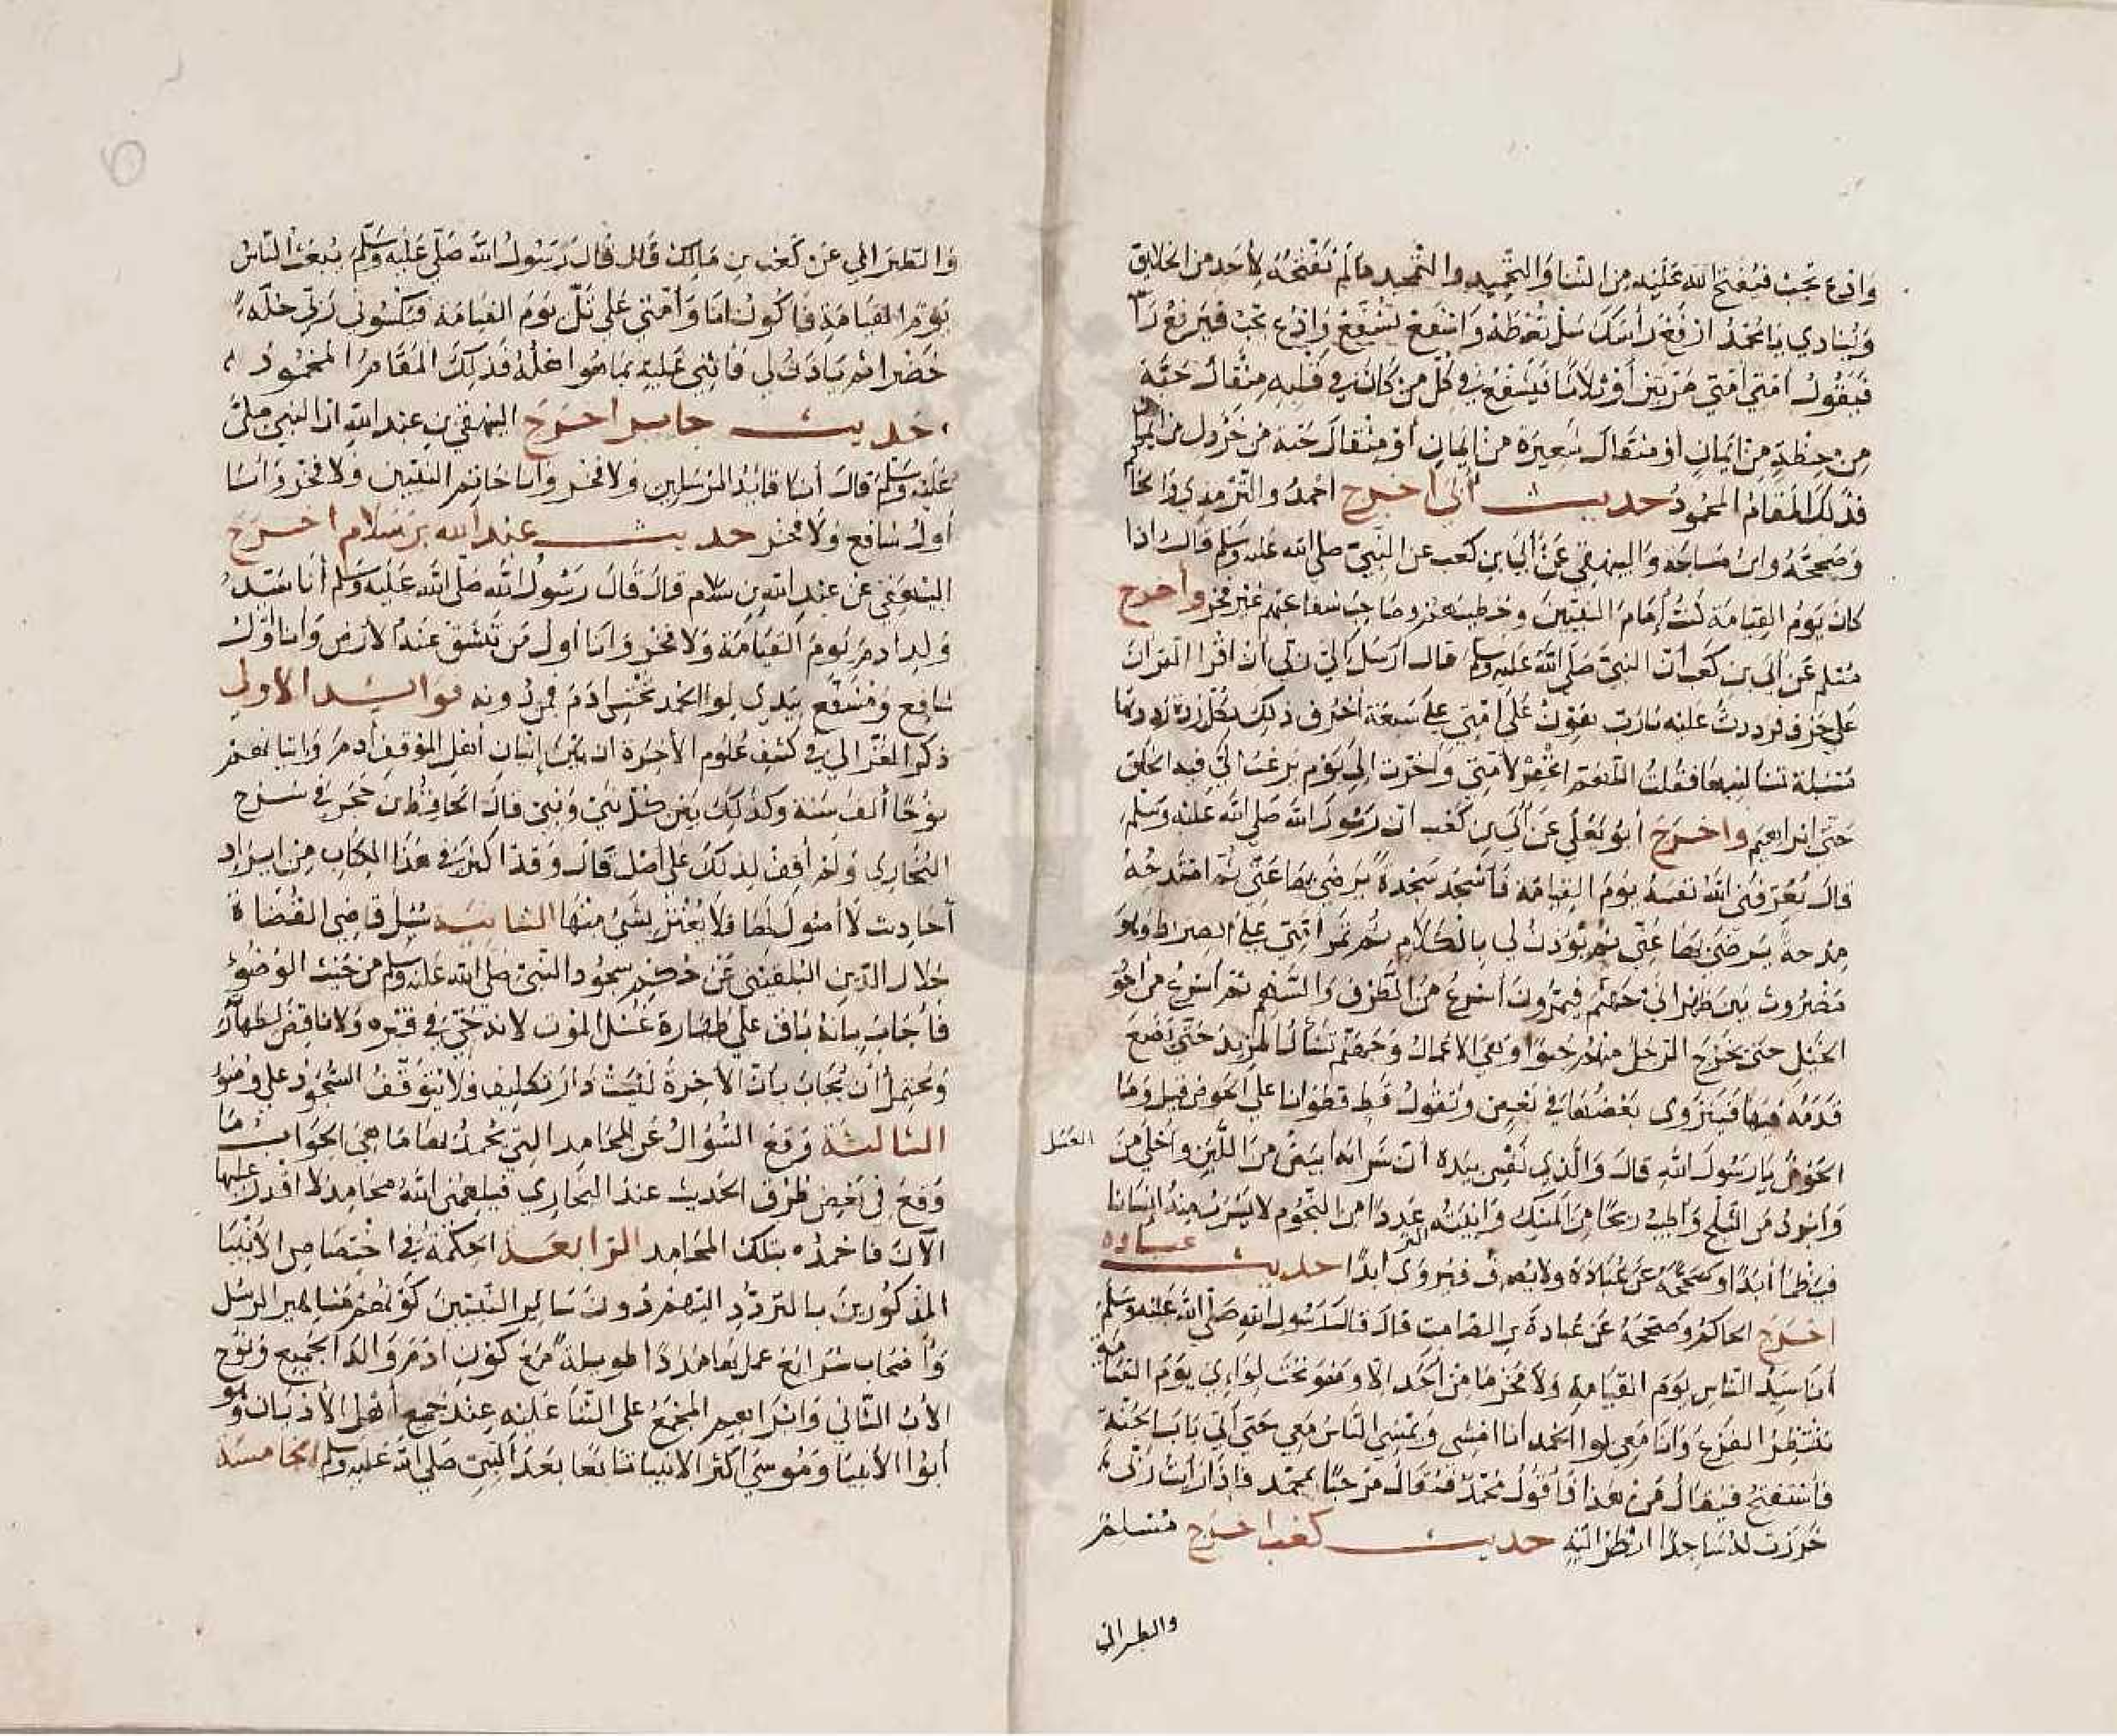 وادع تجب فيفتح الله عليه من الثنا والتحميد والتمجيد ما لم يفتحه لأحد من الخلائق
وينادي يا محمد ارفع رأسك سل تعطه واشفع تشفع وادع تجب فيرفع رأسه
فيقول أمتي أمتي مرتين أو ثلاثا فيشفع في كل من كان في قلبه مثقال حبة
من حنطة من إيمان أو مثقال شعيرة من إيمان أو مثقال حبة من خردل من إيمان
فذلك المقام المحمود حديث أبي أخرج أحمد والترمذي والحاكم
وصححه وابن ماجه والبيهقي عن أبي بن كعب عن النبي صلى الله عليه وسلم قال اذا
كان يوم القيامة كنت إمام النبيين وخطيبهم وصاحب شفاعتهم غير فخر وأخرج
مسلم عن أبي بن كعب أن النبي صلى الله عليه وسلم قال أرسل إلي ربي أن اقرا القران
على حرف فرددت عليه يا رب هون على أمتي على سبعة أحرف ذلك بكل ردة رددتها
مسئلة تسألنيها فقلت اللهم اغفر لأمتي وأخرت إلى يوم يرغب إلي فيه الخلق
حتى ابراهيم وأخرج أبو يعلى عن أبي بن كعب ان رسول الله صلى الله عليه وسلم
قال يعرفني الله نفسه يوم القيامة فأسجد سجدة يرضى بها عني ثم امتدحه
مدحة يرضى بها عني ثم يؤذن لي بالكلام ثم تمر أمتي على الصراط وهو
مضروب بين ظهراني جهنم فيمرون أسرع من الطرف والسهم ثم أسرع من أجود
الخيل حتى يخرج الرجل منهم حبوا وهي الأعمال وجهنم تسأل المزيد حتى يضع
قدمه فيها فينزوي بعضها في بعض وتقول قط قط وانا على الحوض قيل وما
الحوض يا رسول الله قال والذي نفسي بيده أن شرابه أبيض من اللبن وأحلى من
العسل
وأبرد من الثلج وأطيب ريحا من المسك وآنيته عددا من النجوم لا يشرب منه إنسانا
فيظمأ أبدا ولا يصرف فيروى أبدا حديث عبادة
اخرج الحاكم وصححه عن عبادة بن الصامت قال قال رسول الله صلى الله عليه وسلم
أنا سيد الناس يوم القيامة ولا فخر ما من أحد الا وهو تحت لوائي يوم القيامة
ينتظر الفرج وأنا معي لوا الحمد أنا امشي ويمشي الناس معي حتى آتي باب الجنة
فأستفتح فيقال من هذا فأقول محمد فيقال مرحبا بمحمد فاذا رأيت ربي
خررت له ساجدا انظر اليه حديث كعب اخرج مسلم
والطبراني
والطبراني عن كعب بن مالك قال قال رسول الله صلى الله عليه وسلم يبعث الناس
يوم القيامة فأكون انا وأمتي على تل يوم القيامة فيكسوني ربي حلة
خضرا ثم يأذن لي فأثني عليه بما هو اهله فذلك المقام المحمود
حديث جابر اخرج البيهقي عبد الله ان النبي صلى
عليه وسلم قال أنا قائد المرسلين ولا فخر وأنا خاتم النبيين ولا فخر وأنا
أول شافع ولا فخر حديث عبد الله بن سلام اخرج
البيهقي عن عبد الله بن سلام قال قال رسول الله صلى الله عليه وسلم أنا سيد
ولد ادم يوم القيامة ولا فخر وأنا أول من تنشق عنه الأرض وأنا أول
شافع ومشفع بيدي لوا الحمد تحتي ادم فمن دونه فوائد الأولى
ذكر الغزالي في كشف علوم الآخرة ان بين إتيان أهل الموقف أدم وإتيانهم
نوحا ألف سنة وكذلك بين كل نبي ونبي قال الحافظ بن حجر في شرح
البخاري ولم أقف لذلك على أصل قال وقد أكثر في هذا الكتاب من ايراد
أحاديث لا أصول لها فلا يغتر بشئ منها الثانية سئل قاضي القضاة
جلال الدين البلقيني عن حكم سجود النبي صلى الله عليه وسلم من حيث الوضوء
فأجاب بانه باق على طهارة غسل الموت لانه حي في قبره ولا ناقض لطهارته
ويحتمل أن يجاب بأن الآخرة ليست دار تكليف فلا يتوقف السجود على وضوء
الثالثة وقع السؤال عن المحامد التي يحمد بها ما هي الجواب ما
وقع في بعض طرق الحديث عند البخاري فيلهمني الله محامد لا اقدر عليها
الآن فاحمده بتلك المحامد الرابعة الحكمة في اختصاص الأنبيا
المذكورين بالتردد اليهم دون سائر النبيين كونهم مشاهير الرسل
وأصحاب شرائع عمل بها مددا طويلة مع كون ادم والد الجميع ونوح
الأب الثاني وابراهيم المجمع على الثنا عليه عند جميع أهل الأديان وهو
أبوا الأنبيا وموسى اكثر الأنبيا تابعا بعد النبي صلى الله عليه وسلم الخامسة